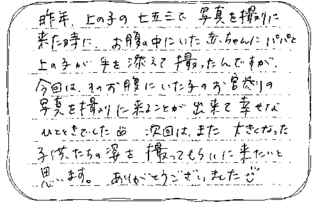 昨年、上の子の七五三で写真を撮りに
来た時に、お腹の中にいた赤ちゃんにパパと
上の子が手を添えて撮ったんですが、
今回は、そのお腹にいた子のお宮参りの
写真を撮りに来ることが出来て幸せな
ひとときでした 次回は、また 大きくなった
子供たちの姿を撮ってもらいに来たいと
思います。 ありがとうございました